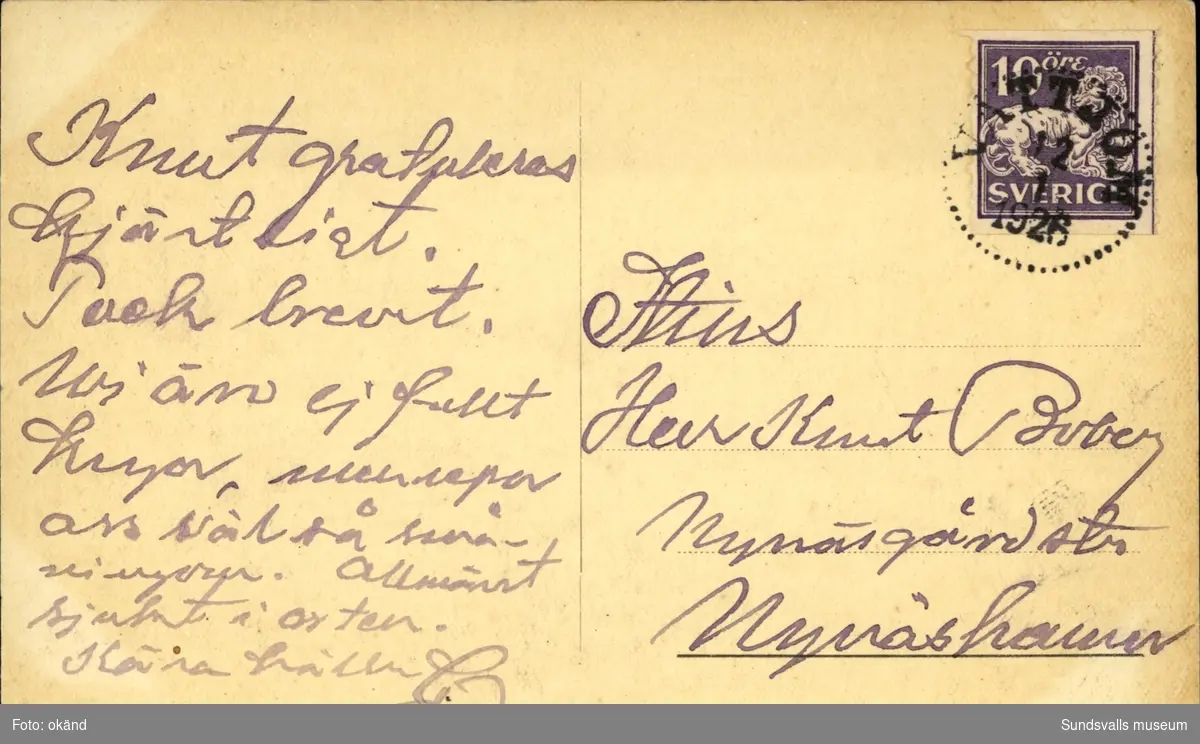 Knut gratuleras
hjärtligt.
Tack brevet.
Vi äro ej fullt
krya, men repar
oss väl så små-
ningom. Allmänt
sjukt i orten.
Kära hälsn
10 öre
SVERIGE
12
1
1926
Herr Knut Boberg
Nynäsgård
Nynäshamn
Foto: okänd
Sundsvalls museum